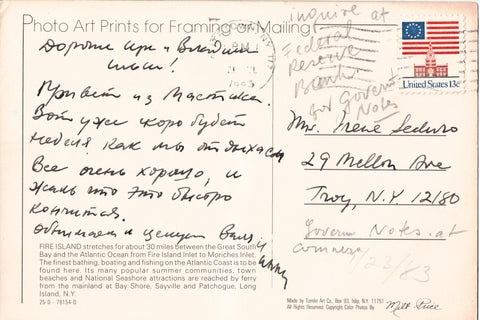 Photo Art Prints for Framing or Mailing
Дорогие Ира и Владимир
Привет из Мастика.
Вот уже скоро будет
неделя как мы отдыхаем
Все очень хорошо, и
жаль что это быстро
кончится.
Обнимаем и целуем Валя и
FIRE ISLAND stretches for about 30 miles between the Great South
Bay and the Atlantic Ocean from Fire Island Inlet to Moriches Inlet.
The finest bathing, boating and fishing on the Atlantic Coast is to be
found here. Its many popular summer communities, town
beaches and National Seashore attractions are reached by ferry
from the mainland at Bay Shore, Sayville and Patchogue, Long
Island, N.Y.
inquire at
Federal
Reserve
Bank
for Governm
Notes
United States 13c
Mr. Irene
29 Mellon Ave
Troy, N.Y. 12180
Govern Notes. at
23/83
Made by Tomlin Art Co., Box 93, Islip, N.Y. 11751
All Rights Reserved Copyright Color Photos By
Milt Price